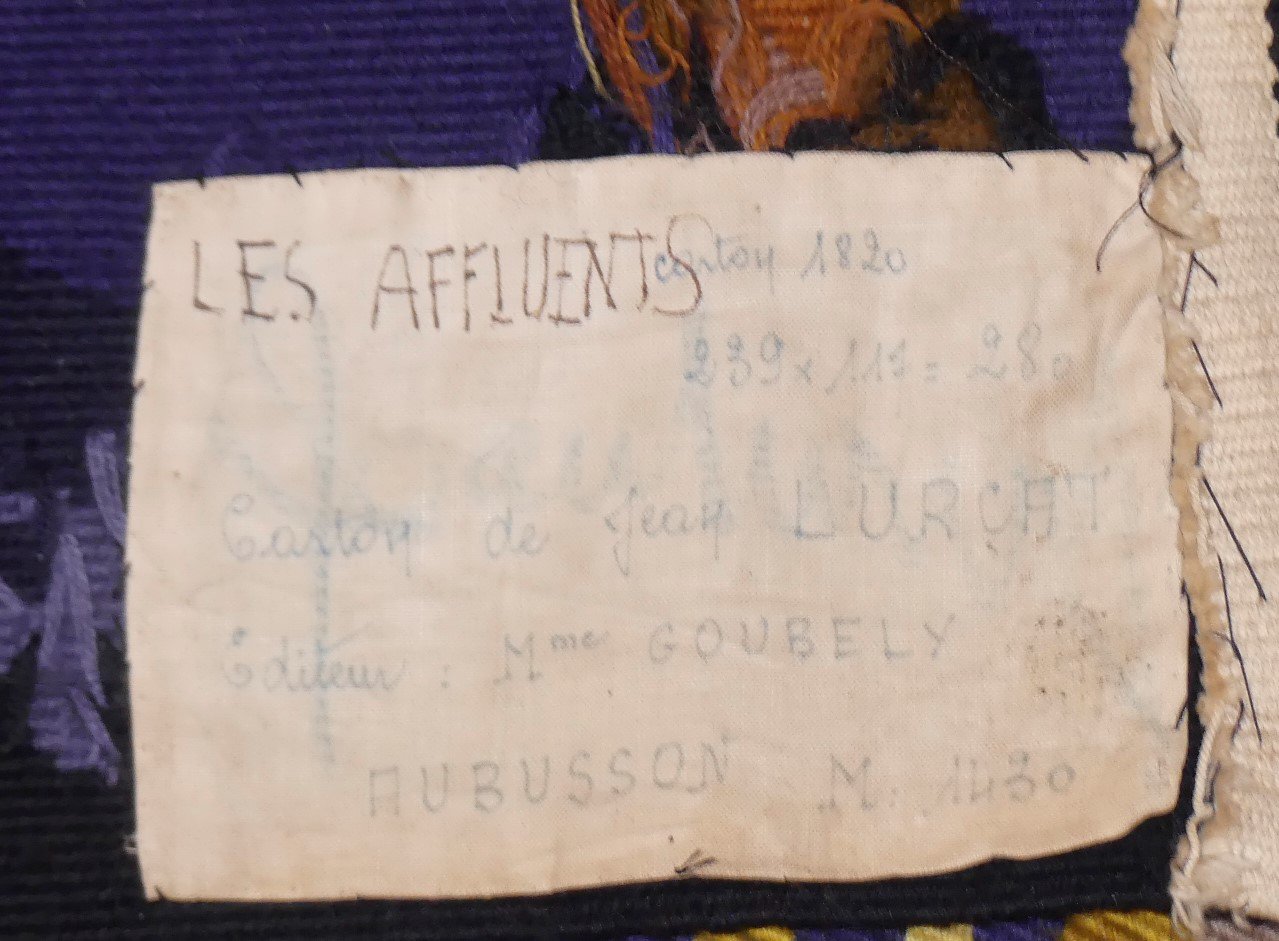 LES AFFLUENTS carton 1820
239 x 118 = 280
Carton de Jean LURÇAT
Editeur : Mme GOUBELY
AUBUSSON M. 1430